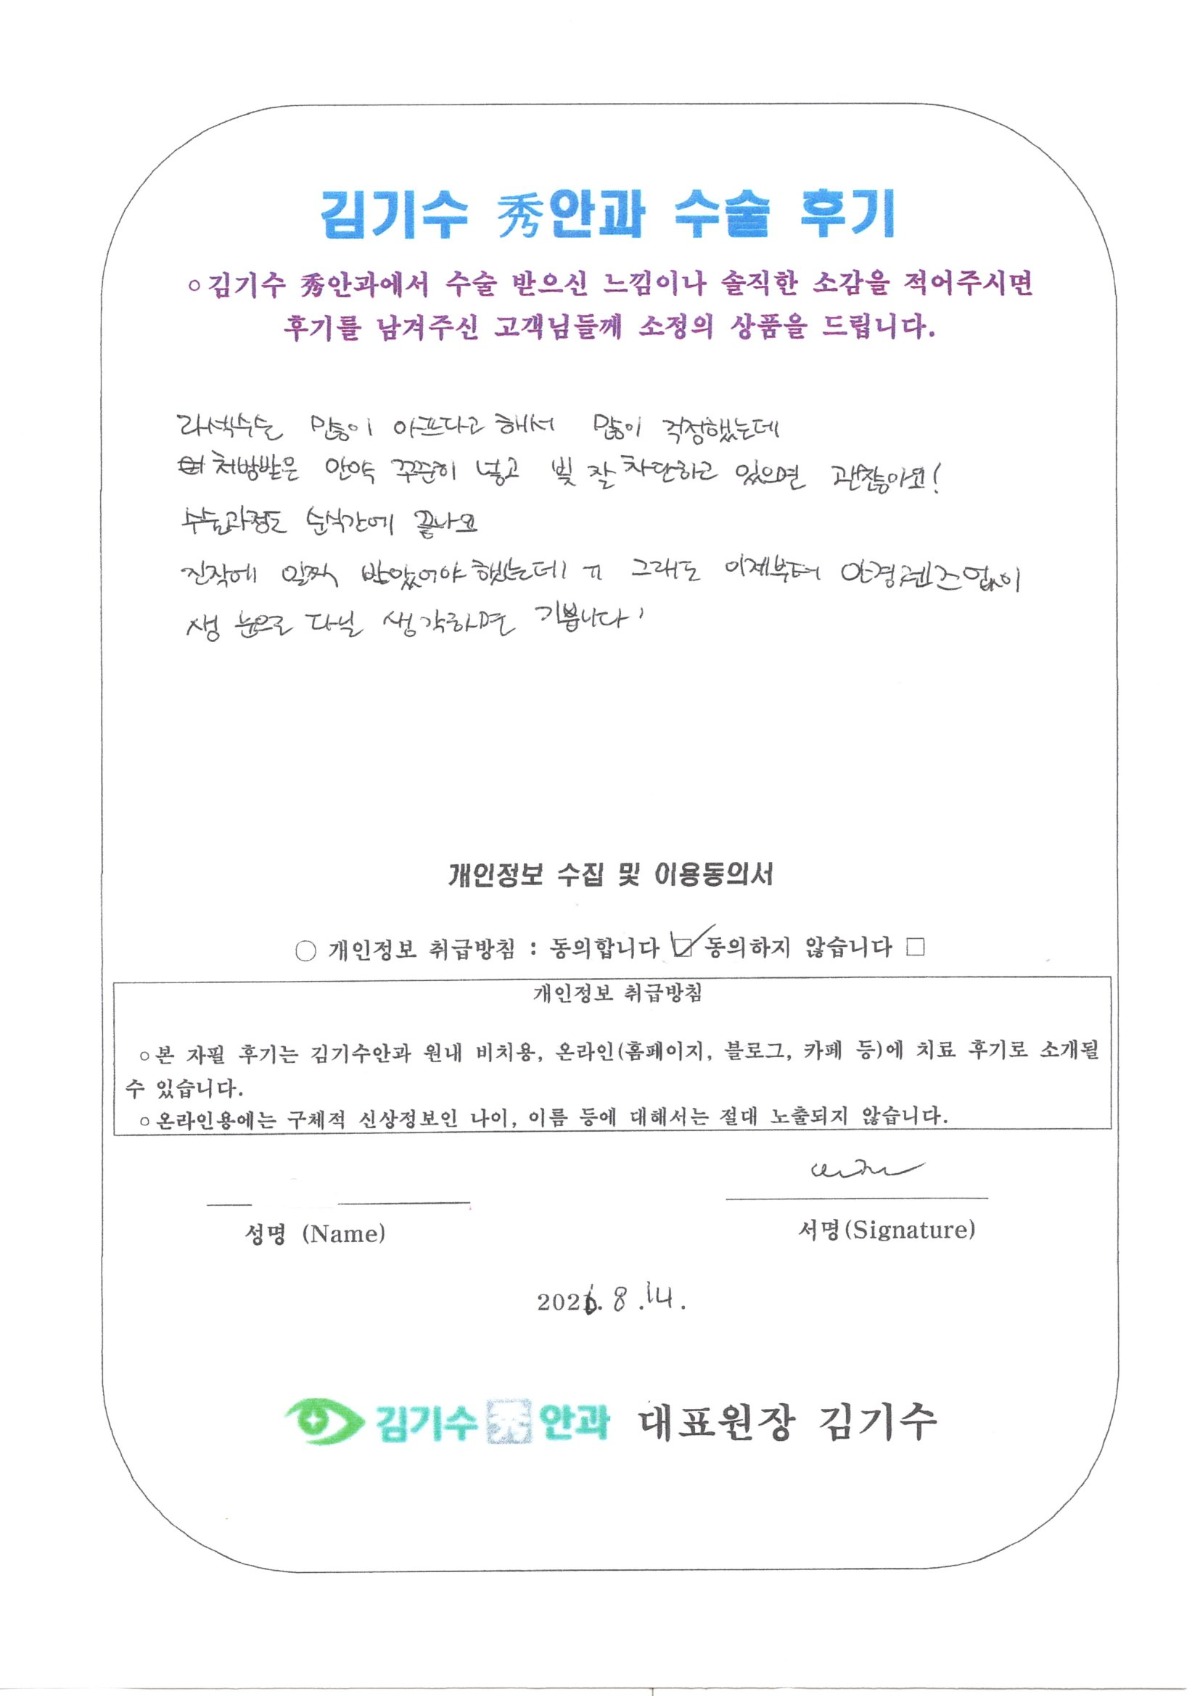 김기수 秀안과 수술 후기
○김기수 秀안과에서 수술 받으신 느낌이나 솔직한 소감을 적어주시면
후기를 남겨주신 고객님들께 소정의 상품을 드립니다.
라섹수술 많이 아프다고 해서 많이 걱정했는데
처방받은 안약 꾸준히 넣고 빛 잘 차단하고 있으면 괜찮아요!
수술과정도 순식간에 끝나요
진작에 일찍 받았어야 했는데 ㅠ 그래도 이제부터 안경렌즈없이
생 눈으로 다닐 생각하면 기쁩니다!
개인정보 수집 및 이용동의서
○ 개인정보 취급방침 : 동의합니다 ☑ 동의하지 않습니다 □
개인정보 취급방침
○본 자필 후기는 김기수안과 원내 비치용, 온라인(홈페이지, 블로그, 카페 등)에 치료 후기로 소개될
수 있습니다.
○온라인용에는 구체적 신상정보인 나이, 이름 등에 대해서는 절대 노출되지 않습니다.
성명 (Name) 서명(Signature)
8 .14.
김기수 秀 안과 대표원장 김기수